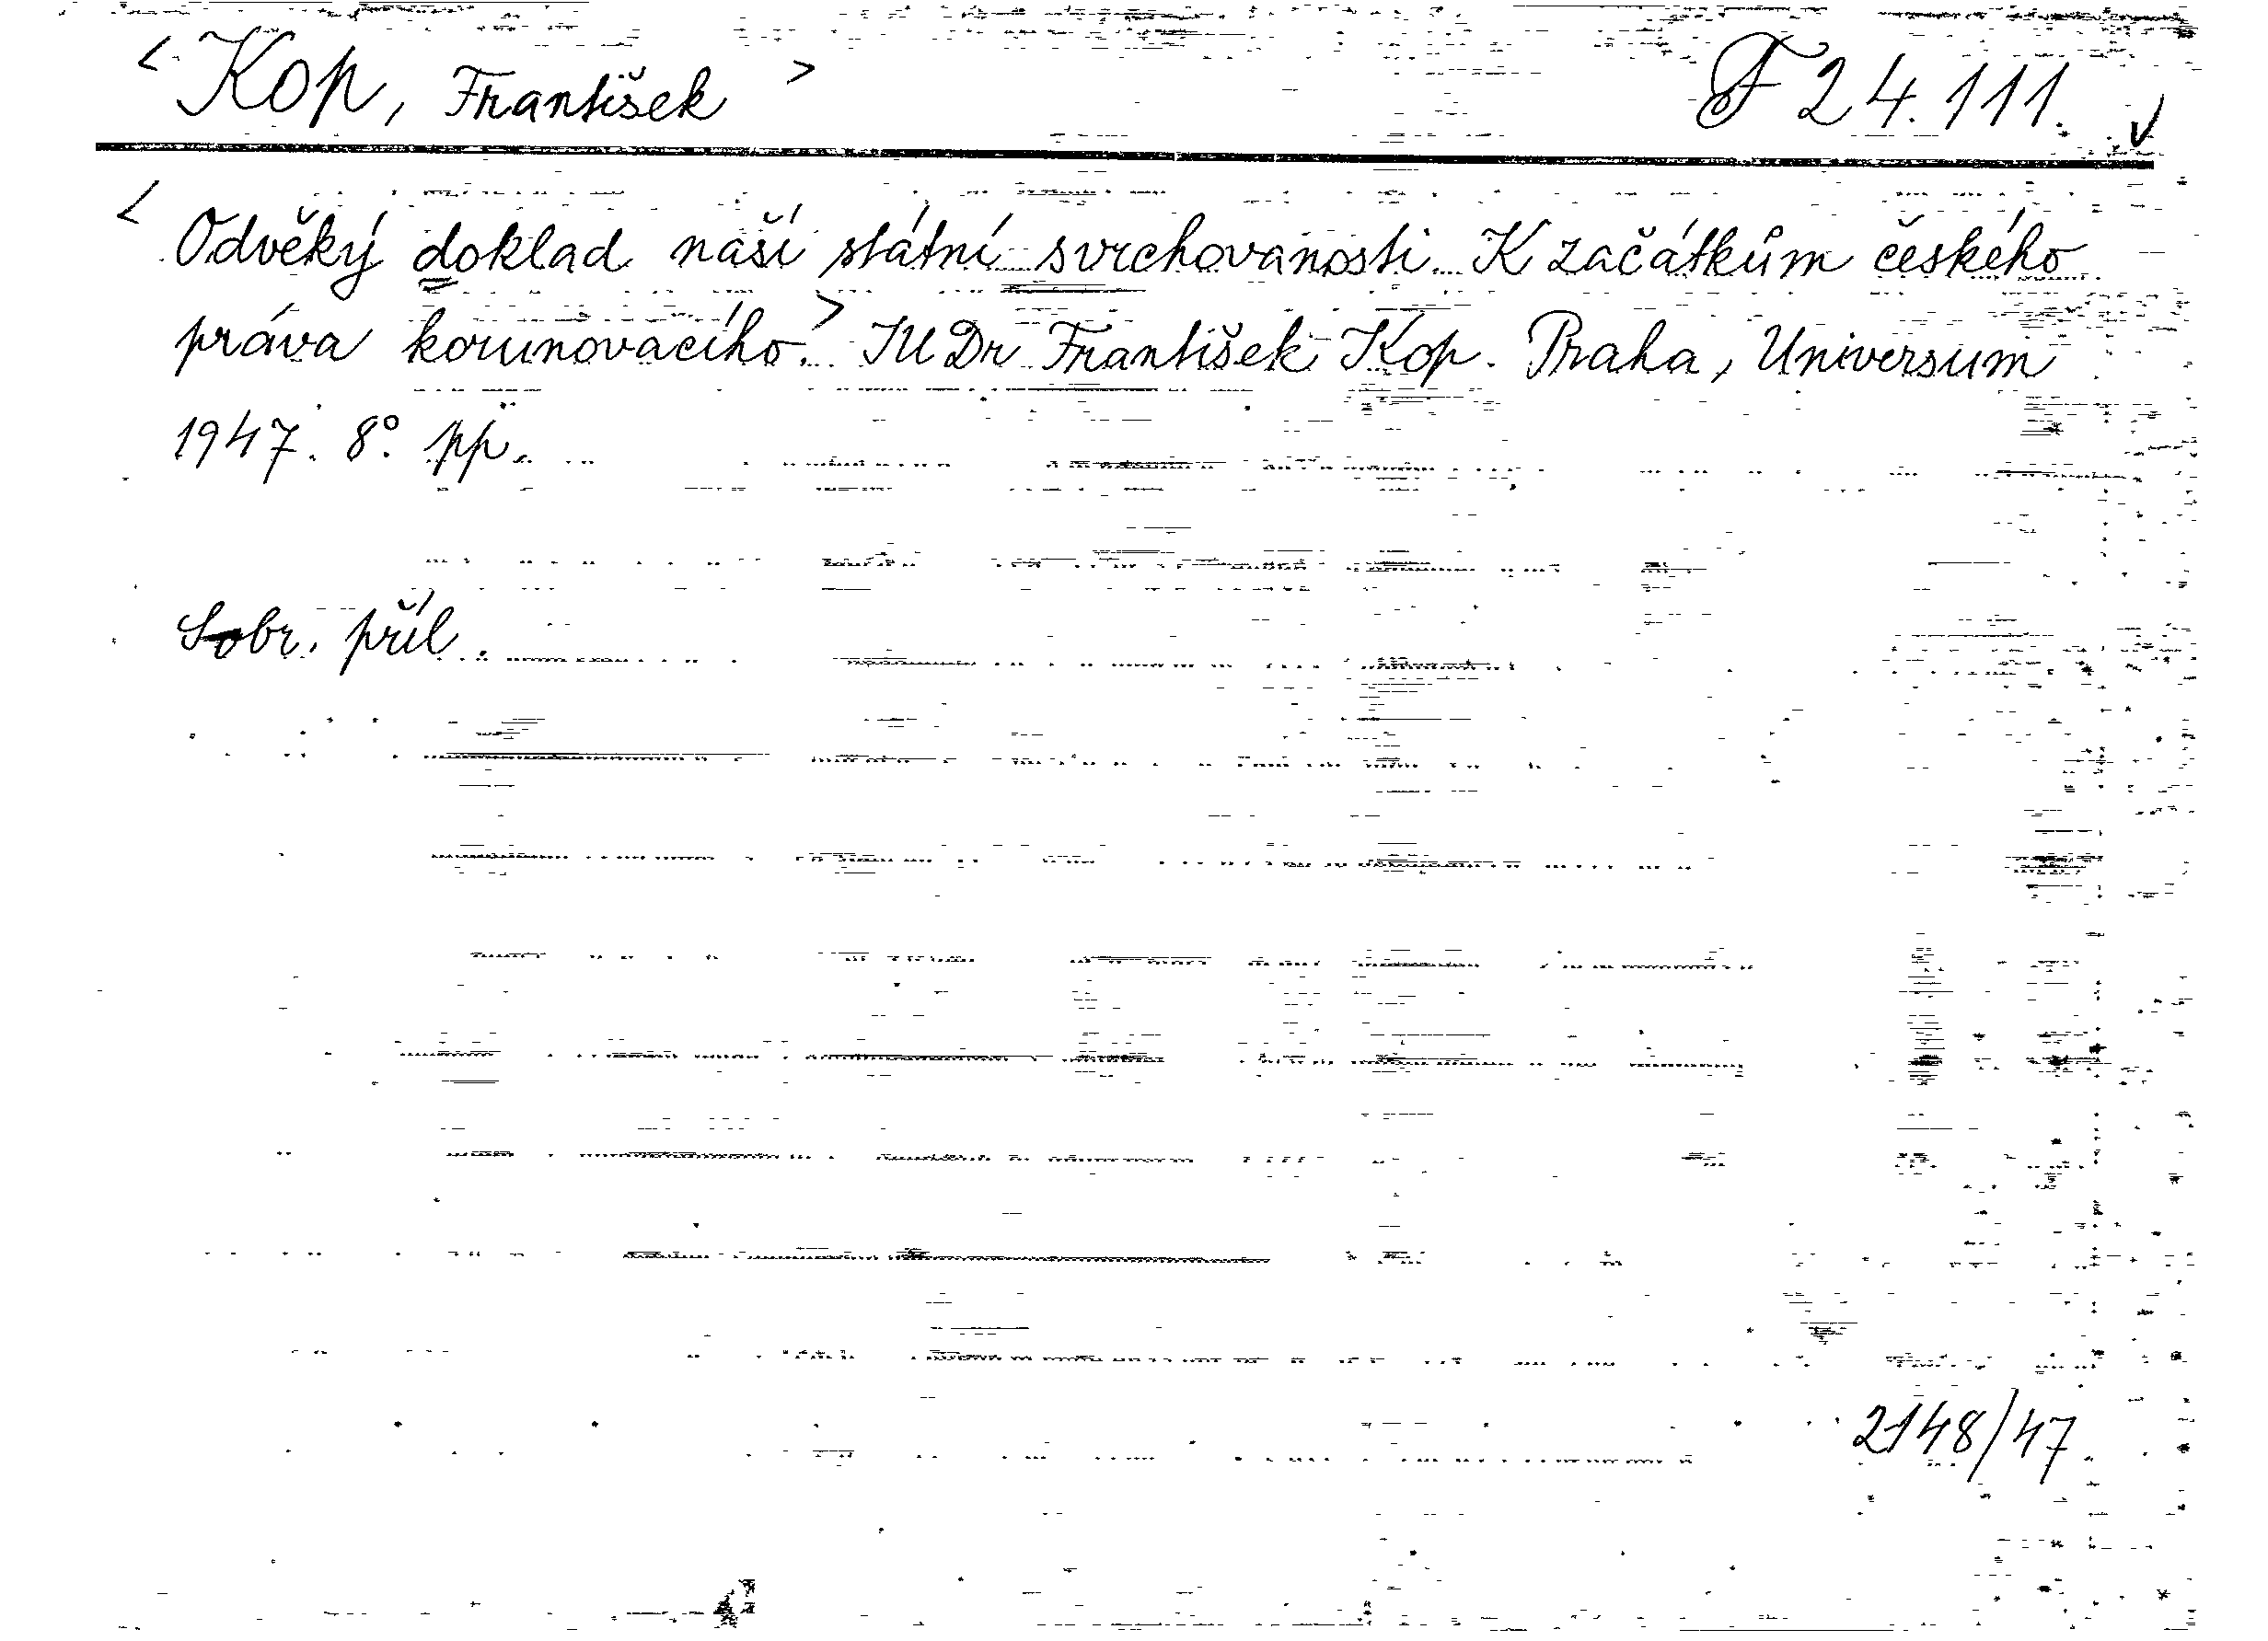 < Kop, František > F 24.111.
< Odvěký doklad naší státní svrchovanosti. K začátkům českého
práva korunovacího.> JUDr František Kop. Praha, Universum
1947. 8°. pp.
Sobr. příl.
2148/47